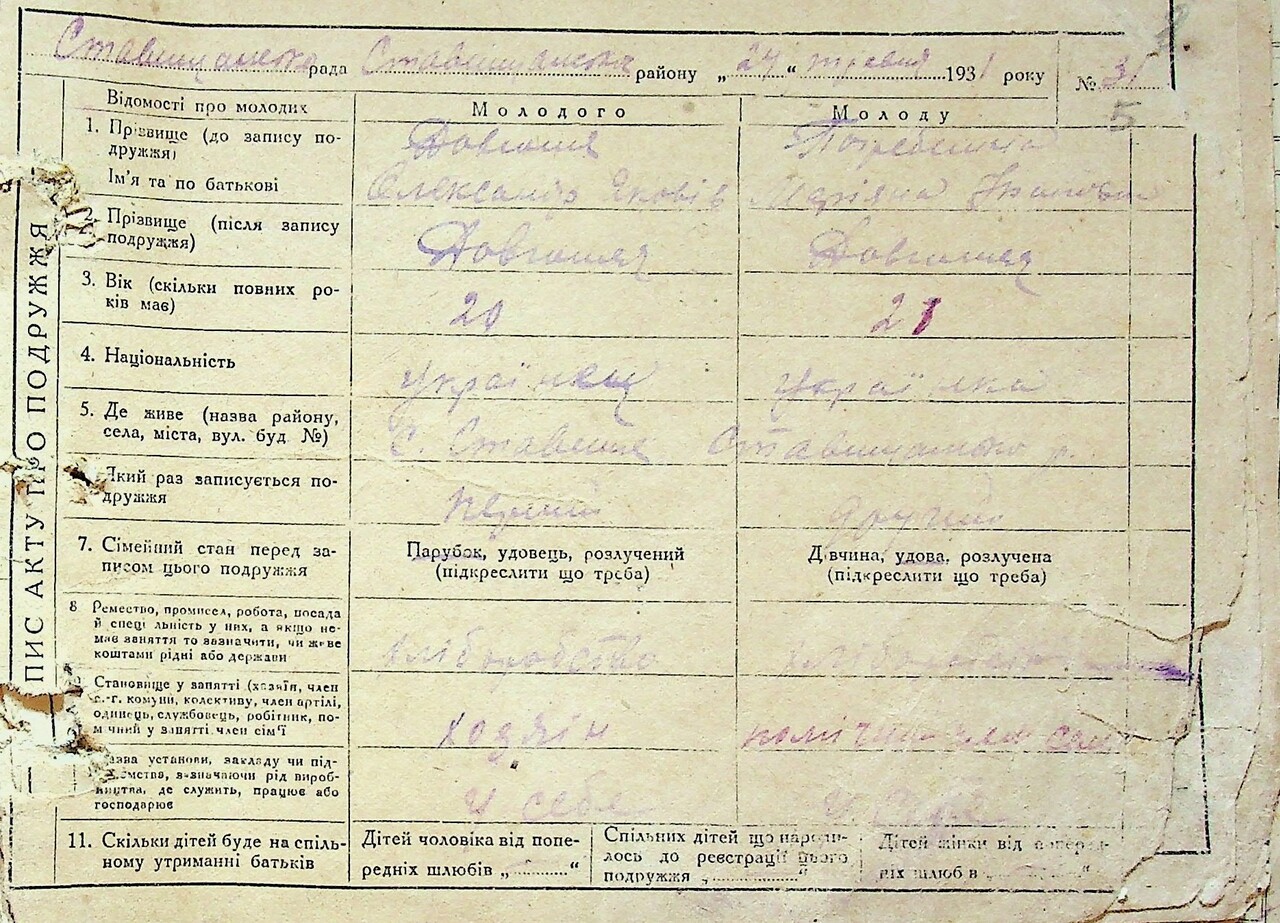 Ставищанська рада Ставищанська району „24“ травня 1931 року № 31
5
ПИС АКТУ ПРО ПОДРУЖЖЯ
Відомості про молодих Молодого Молоду
1. Прізвище (до запису по-
дружжя)
Ім'я та по батькові Олександр Яковів Мар'яна
2. Прізвище (після запису
подружжя)
3. Вік (скільки повних ро-
ків має) 20 21
4. Національність українец українка
5. Де живе (назва району,
села, міста, вул. буд №) С. Ставище Ставищансько р.
Який раз записується по-
дружжя перший другий
7. Сімейний стан перед за-
писом цього подружжя
Парубок, удовець, розлучений
(підкреслити що треба)
Дівчина, удова, розлучена
(підкреслити що треба)
8 Ремество, промисел, робота, посада
й спеці льність у них, а якщо не-
має заняття то зазначити, чи живе
коштами рідні або держави хліборобство
Становище у занятті (хазяїн, член
с.-г. комуни, колективу, член артілі,
одинець, службовець, робітник, по-
м чний у занятті член сім'ї ходяїн
азва установи, закладу чи під-
ємства, зазначаючи рід вироб-
ництва, де служить, працює або
господарює у себе у себе
11. Скільки дітей буде на спіль-
ному утриманні батьків
Дітей чоловіка від попе-
редніх шлюбів „ “
Спільних дітей що народи-
лось до реєстрації цього
подружжя „ “
Дітей жінки від поперед-
ніх шлюб в „ “